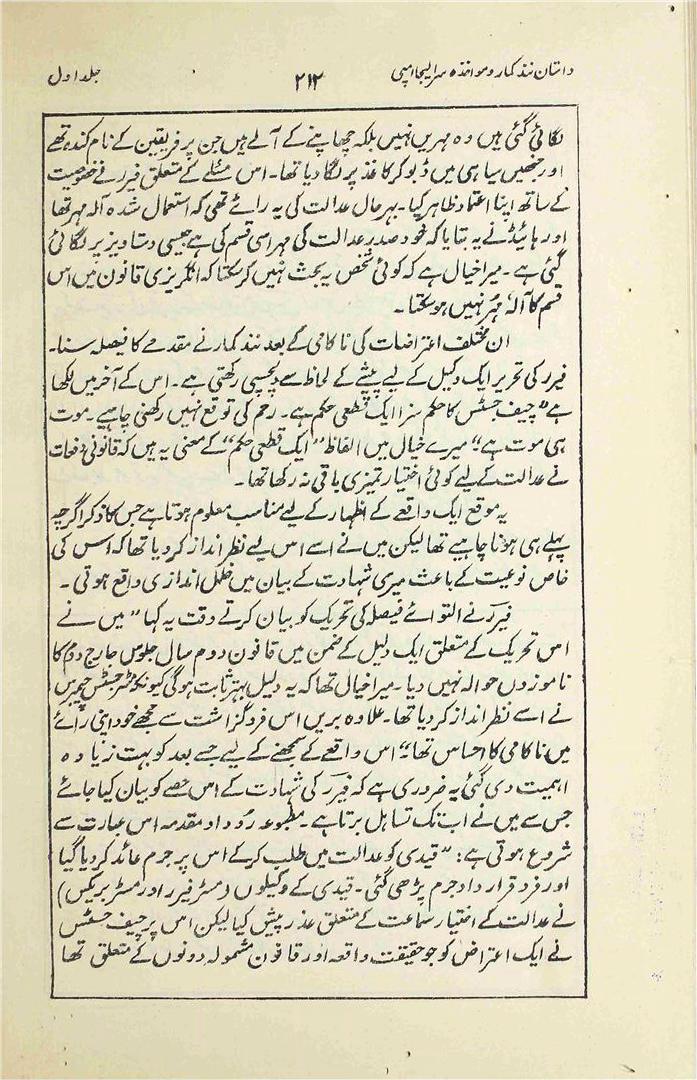 داستان نند کمار و مواخذہ سرایلجا امپی ۲۱۲ جلد اول
لگائی گئی ہیں وہ مہریں نہیں بلکہ چھاپنے کے آلے ہیں جن پر فریقین کے نام کندہ تھے
اور جنھیں سیاہی میں ڈبو کر کاغذ پر لگا دیا تھا۔ اس مسئلے کے متعلق فیرر نے خصوصیت
کے ساتھ اپنا اعتماد ظاہر کیا۔ بہرحال عدالت کی یہ رائے تھی کہ استعمال شدہ آلہ مہر تھا
اور ہائیڈ نے یہ بتایا کہ خود صدر عدالت کی مہر اسی قسم کی ہے جیسی دستاویز پر لگائی
گئی ہے۔ میرا خیال ہے کہ کوئی شخص یہ بحث نہیں کر سکتا کہ انگریزی قانون میں اس
قسم کا آلہ مُہر نہیں ہو سکتا۔
ان مختلف اعتراضات کی ناکامی کے بعد نند کمار نے مقدمے کا فیصلہ سنا۔
فیرر کی تحریر ایک وکیل کے لیے پیشے کے لحاظ سے دلچسپی رکھتی ہے۔ اس کے آخر میں لکھا
ہے ”چیف جسٹس کا حکم سزا ایک قطعی حکم ہے۔ رحم کی توقع نہیں رکھنی چاہیے۔ موت
ہی موت ہے“ میرے خیال میں الفاظ ”ایک قطعی حکم“ کے معنی یہ ہیں کہ قانونی دفعات
نے عدالت کے لیے کوئی اختیار تمیزی باقی نہ رکھا تھا۔
یہ موقع ایک واقعے کے اظہار کے لیے مناسب معلوم ہوتا ہے جس کا ذکر اگرچہ
پہلے ہی ہونا چاہیے تھا لیکن میں نے اسے اس لیے نظر انداز کر دیا تھا کہ اس کی
خاص نوعیت کے باعث میری شہادت کے بیان میں خلل اندازی واقع ہوتی۔
فیرر نے التوائے فیصلہ کی تحریک کو بیان کرتے وقت یہ کہا ”میں نے
اس تحریک کے متعلق ایک دلیل کے ضمن میں قانون دوم سال جلوس جارج دوم کا
ناموزوں حوالہ نہیں دیا۔ میرا خیال تھا کہ یہ دلیل بہتر ثابت ہوگی کیونکہ مسٹر جسٹس چیمبرس
نے اسے نظر انداز کر دیا تھا۔ علاوہ بریں اس فروگزاشت سے مجھے خود اپنی رائے
میں ناکامی کا احساس تھا“ اس واقعے کے سمجھنے کے لیے جسے بعد کو بہت زیادہ
اہمیت دی گئی یہ ضروری ہے کہ فیرر کی شہادت کے اس حصے کو بیان کیا جائے
جس سے میں نے اب تک تساہل برتا ہے۔ مطبوعہ رُوداد مقدمہ اس عبارت سے
شروع ہوتی ہے: ”قیدی کو عدالت میں طلب کر کے اس پر جرم عائد کر دیا گیا
اور فرد قرارداد جرم پڑھی گئی۔ قیدی کے وکیلوں (مسٹر فیرر اور مسٹر بریکس)
نے عدالت کے اختیار سماعت کے متعلق عذر پیش کیا لیکن اس پر چیف جسٹس
نے ایک اعتراض کو جو حقیقت واقعہ اور قانون مشمولہ دونوں کے متعلق تھا